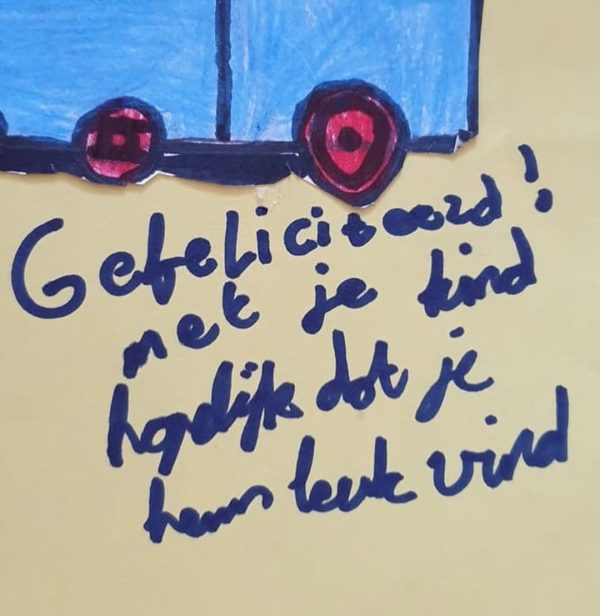 Gefeliciteerd!
met je kind
hopelijk dat je
hem leuk vind